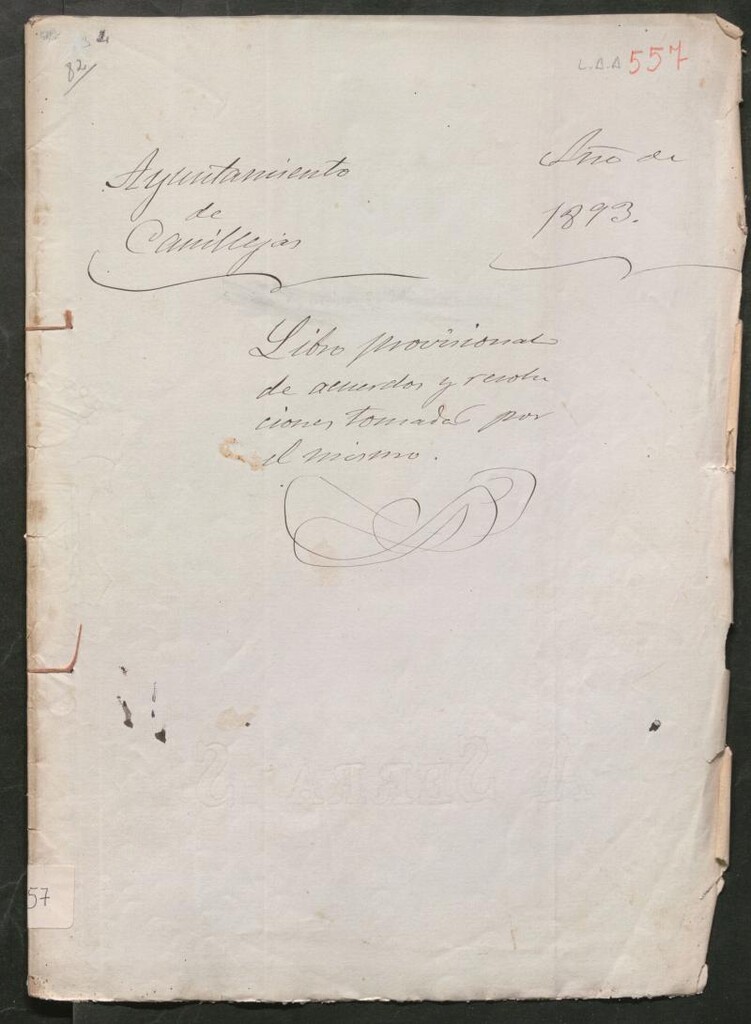 82
L.A.A 557
Ayuntamiento
de
Canillejas
Año de
1893.
Libro provisional
de acuerdos y resolu
ciones tomadas por
el mismo.
57